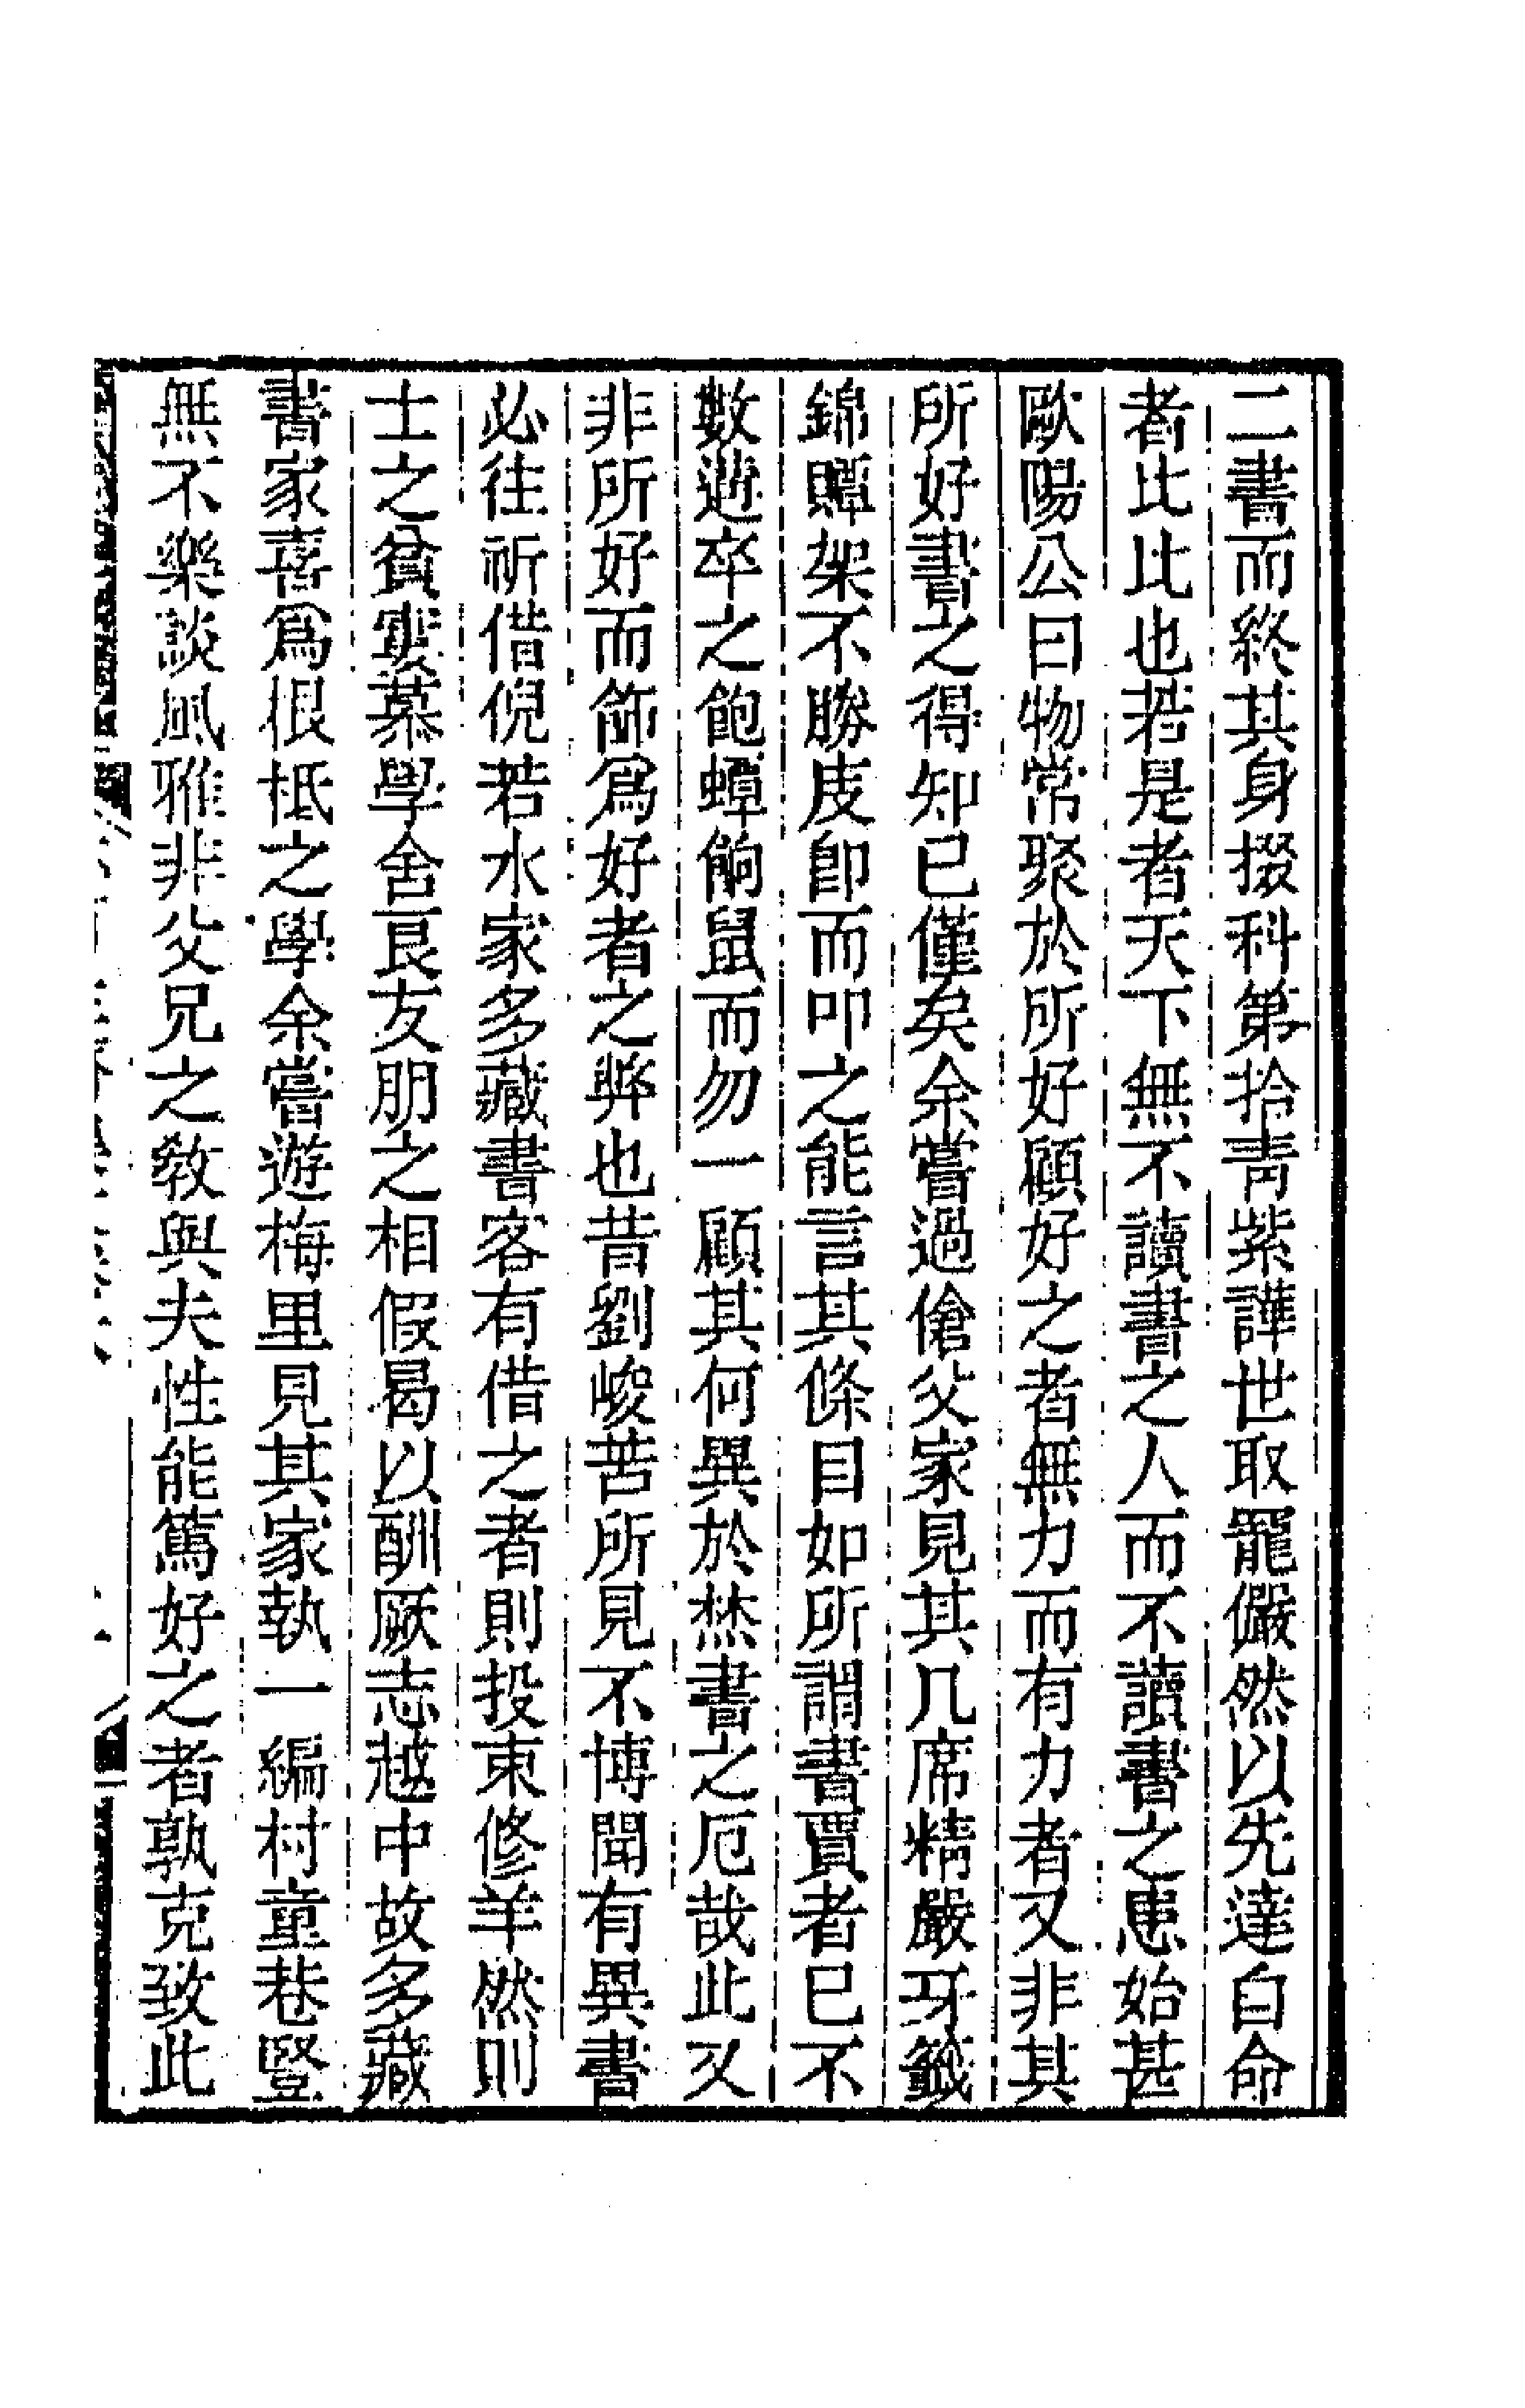 二書而終其身掇科第拾靑紫譁世取寵儼然以先達自命
者比比也若是者天下無不讀書之人而不讀書之患始甚
歐陽公曰物常聚於所好顧好之者無力而有力者又非其
所好書之得知已僅矣余嘗過傖父家見其几席精嚴牙籤
錦贉架不勝庋卽而叩之能言其條目如所謂書賈者已不
數遊卒之飽蟫餉鼠而勿一顧其何異於焚書之厄哉此又
非所好而飾爲好者之弊也昔劉峻苦所見不博聞有異書
必往祈借倪若水家多藏書客有借之者則投束修羊然則
士之貧窶慕學舍良友朋之相假曷以酬厥志越中故多藏
書家喜爲根柢之學余嘗遊梅里見其家執一編村童巷豎
無不樂談風雅非父兄之敎與夫性能篤好之者孰克致此